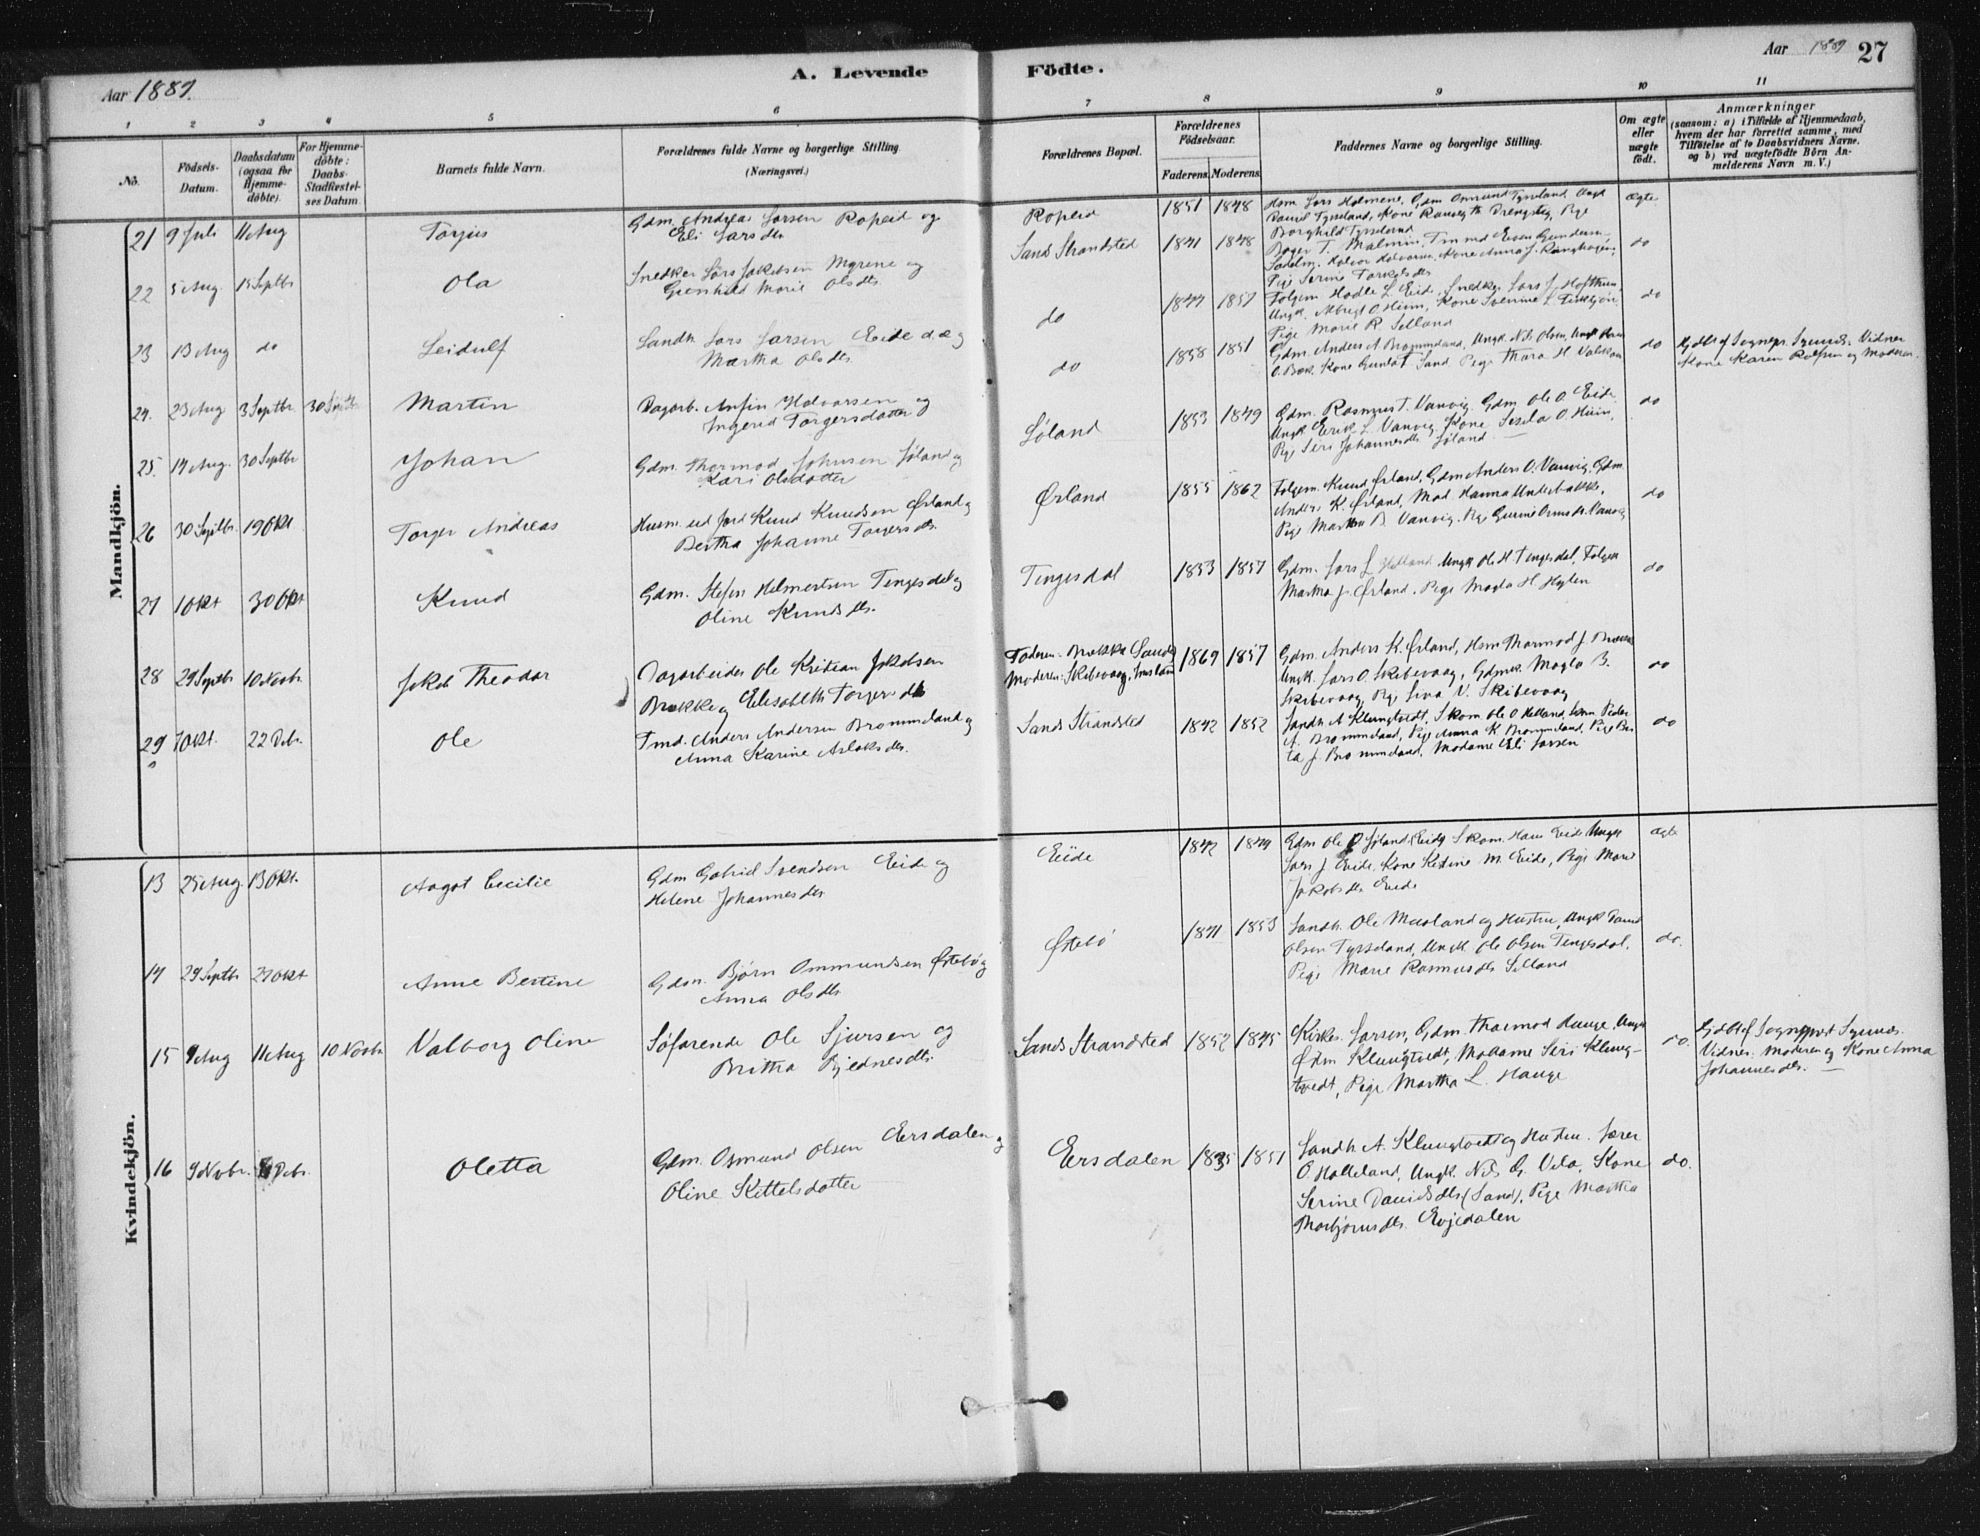 Aar 1889.
A. Levende
Födte.
Aar 1889
27
1 2 3 4 5 6 7 8 9 10 11
No.
Födsels-
Datum.
Daabsdatum
(ogsaa for
Hjemme-
döbte).
For Hjemme-
döbte:
Daabs-
Stadfæstel-
ses Datum.
Barnets fulde Navn.
Forældrenes fulde Navne og borgerlige Stilling.
(Næringsvei.)
Forældrenes Bopæl.
Forældrenes
Födselsaar.
Faderens. Moderens.
Faddernes Navne og borgerlige Stilling.
Om ægte
eller
uægte
födt.
Anmærkninger
(saasom: a) i Tilfælde af Hjemmedaab,
hvem der har forrettet samme, med
Tilföielse af to Daabsvidners Navne,
og b) ved uægtefödte Börn An-
melderens Navn m. V.)
Mandkjön.
21 9 Juli 11 Aug Torjus
Gdm. Andreas Larsen Ropeid og
Eli Larsdtr
Ropeid 1851 1848
Hsm. Lars Holmene, Gdm Tysseland, Ungk
Tysseland, Kone Drengstig, Pige
Borghild Tysseland
ægte
22 5 Aug. 15 Septbr Ola
Snedker Lars Jakobsen Myrene og
Gunhild Marie Olsdtr.
Sands Strandsted 1841 1848
T. Malmin, Even
Kone Anna J.
Pige Serine Torkelsdtr
do
23 13 Aug do Leidulf
Sandh. Lars Larsen Eide d.æ. og
Martha Olsdtr.
do 1844 1857
Folgem. Hodle L. Eide, Snedker Lars J.
Ungk. O. Hiim, Kone L.
Pige Marie R. Selland
do
24. 23 Aug 3 Septbr. 30 Septbr Martin
Dagarb. Anfin Halvorsen og
Ingerid Torgersdatter
do 1858 1851
Gdm. Anders A Brommeland, Ungk. Nils Olsen, Ungk
Kone Sand Pige Thora H.
do
Hjdbt af Sognepr. Vidner
Kone Karen og Moderen.
25. 14 Aug. 30 Septbr Johan
Gdm. Thormod Johnsen Løland og
Kari Olsdatter
Løland 1853 1849
Gdm. Rasmus T. Vanvig. Gdm Ole O. Eide,
Ungk Erik L. Vanvig, Kone Sesela O. Hiim,
Pige Siri Johannesdtr Løland
do
26 30 Septbr. 19 Okt Torger Andreas
Husm. ud Jord Knud Knudsen Ørland og
Bertha Johanne Torgersdtr.
Ørland 1855 1862
Folgem. Knud Ørland, Gdm Anders O. Vanvig, Gdm.
Anders K. Ørland, Mad. Hanna Underbakke,
Pige Martha B. Vanvig, Pige Gurine Vanvig
do
27 1 Okt 30 Okt Knud
Gdm. Stefen Helmertsen Tengesdal og
Oline Knudsdtr.
Tengesdal 1853 1857
Gdm. Lars L. Helland Ungk Ole H Tengesdal, Folgek
Martha J. Ørland, Pige Magla H. Hylen
do
28 29 Septbr 10 Novbr. Jakob Theodor
Dagarbeider Ole Kristian Jakobsen
Brække og Elisabeth Torgersdtr
Faderen: Brække Sands
Moderen: Skibevaag, Imsland 1869 1857
Gdm. Anders K. Ørland, Hsm Thormod J. Brække
Ungk. Lars O. Skibevaag, Gdmk. Magla B.
Skibevaag, Pige Lina V. Skibevaag
do
29 7 Okt. 22 Debr. Ole
Tmd. Anders Andersen Brommeland og
Anna Karine Aslaksdtr.
Sands Strandsted 1842 1852
Sandh. A Klungtvedt, Skom. Ole O Helland, Peder
A. Brommeland, Pige Anna K Brommeland, Pige Ber
ta J. Brommeland, Madame Eli Larsen
do
Kvindekjön.
13 25 Aug. 13 Okt. Aagot Cecilie
Gdm Gabriel Svendsen Eide og
Helene Johannesdtr
Eide 1842 1849
Gdm Ole O Løland (Eide) Skom. Hans Eide Ungk
Lars J Eide, Kone Kristine M. Eide, Pige Marie
Jakobsdtr Eide
ægte
14 29 Septbr 27 Okt Anne Bertine
Gdm. Bjørn Ommundsen Østebø og
Anna Olsdtr
Østebø 1841 1853
Sandh. Ole Maaland og Hustru, Ungk
Olsen Tysseland, Ungk Ole Olsen Tengesdal,
Pige Marie Rasmusdtr Selland
do.
15 9 Aug 11 Aug 10 Novbr. Valborg Oline
Søfarende Ole Sjursen og
Britha Bjednesdtr.
Sands Strandsted 1852 1845
Kirkes. Larsen, Gdm. Thormod Hauge, Ungk
Ødm Klungtvedt, Madame Siri Klung-
tvedt, Pige Martha L. Hauge
do.
Hjdbt af Sogneprest
Vidner: Moderen og Kone Anna
Johannesdtr.
16 9 Novbr. 8 Debr. Oletta
Gdm. Osmund Olsen Eersdalen og
Oline Kittelsdatter
Eersdalen 1835 1851
Sandh. A. Klungtvedt og Hustru. Lærer
O. Halleland, Ungk. Nils G. Vela, Kone
Serine Davidsdtr (Sand), Pige Martha
Thorbjørnsdtr. Evjedalen
do.